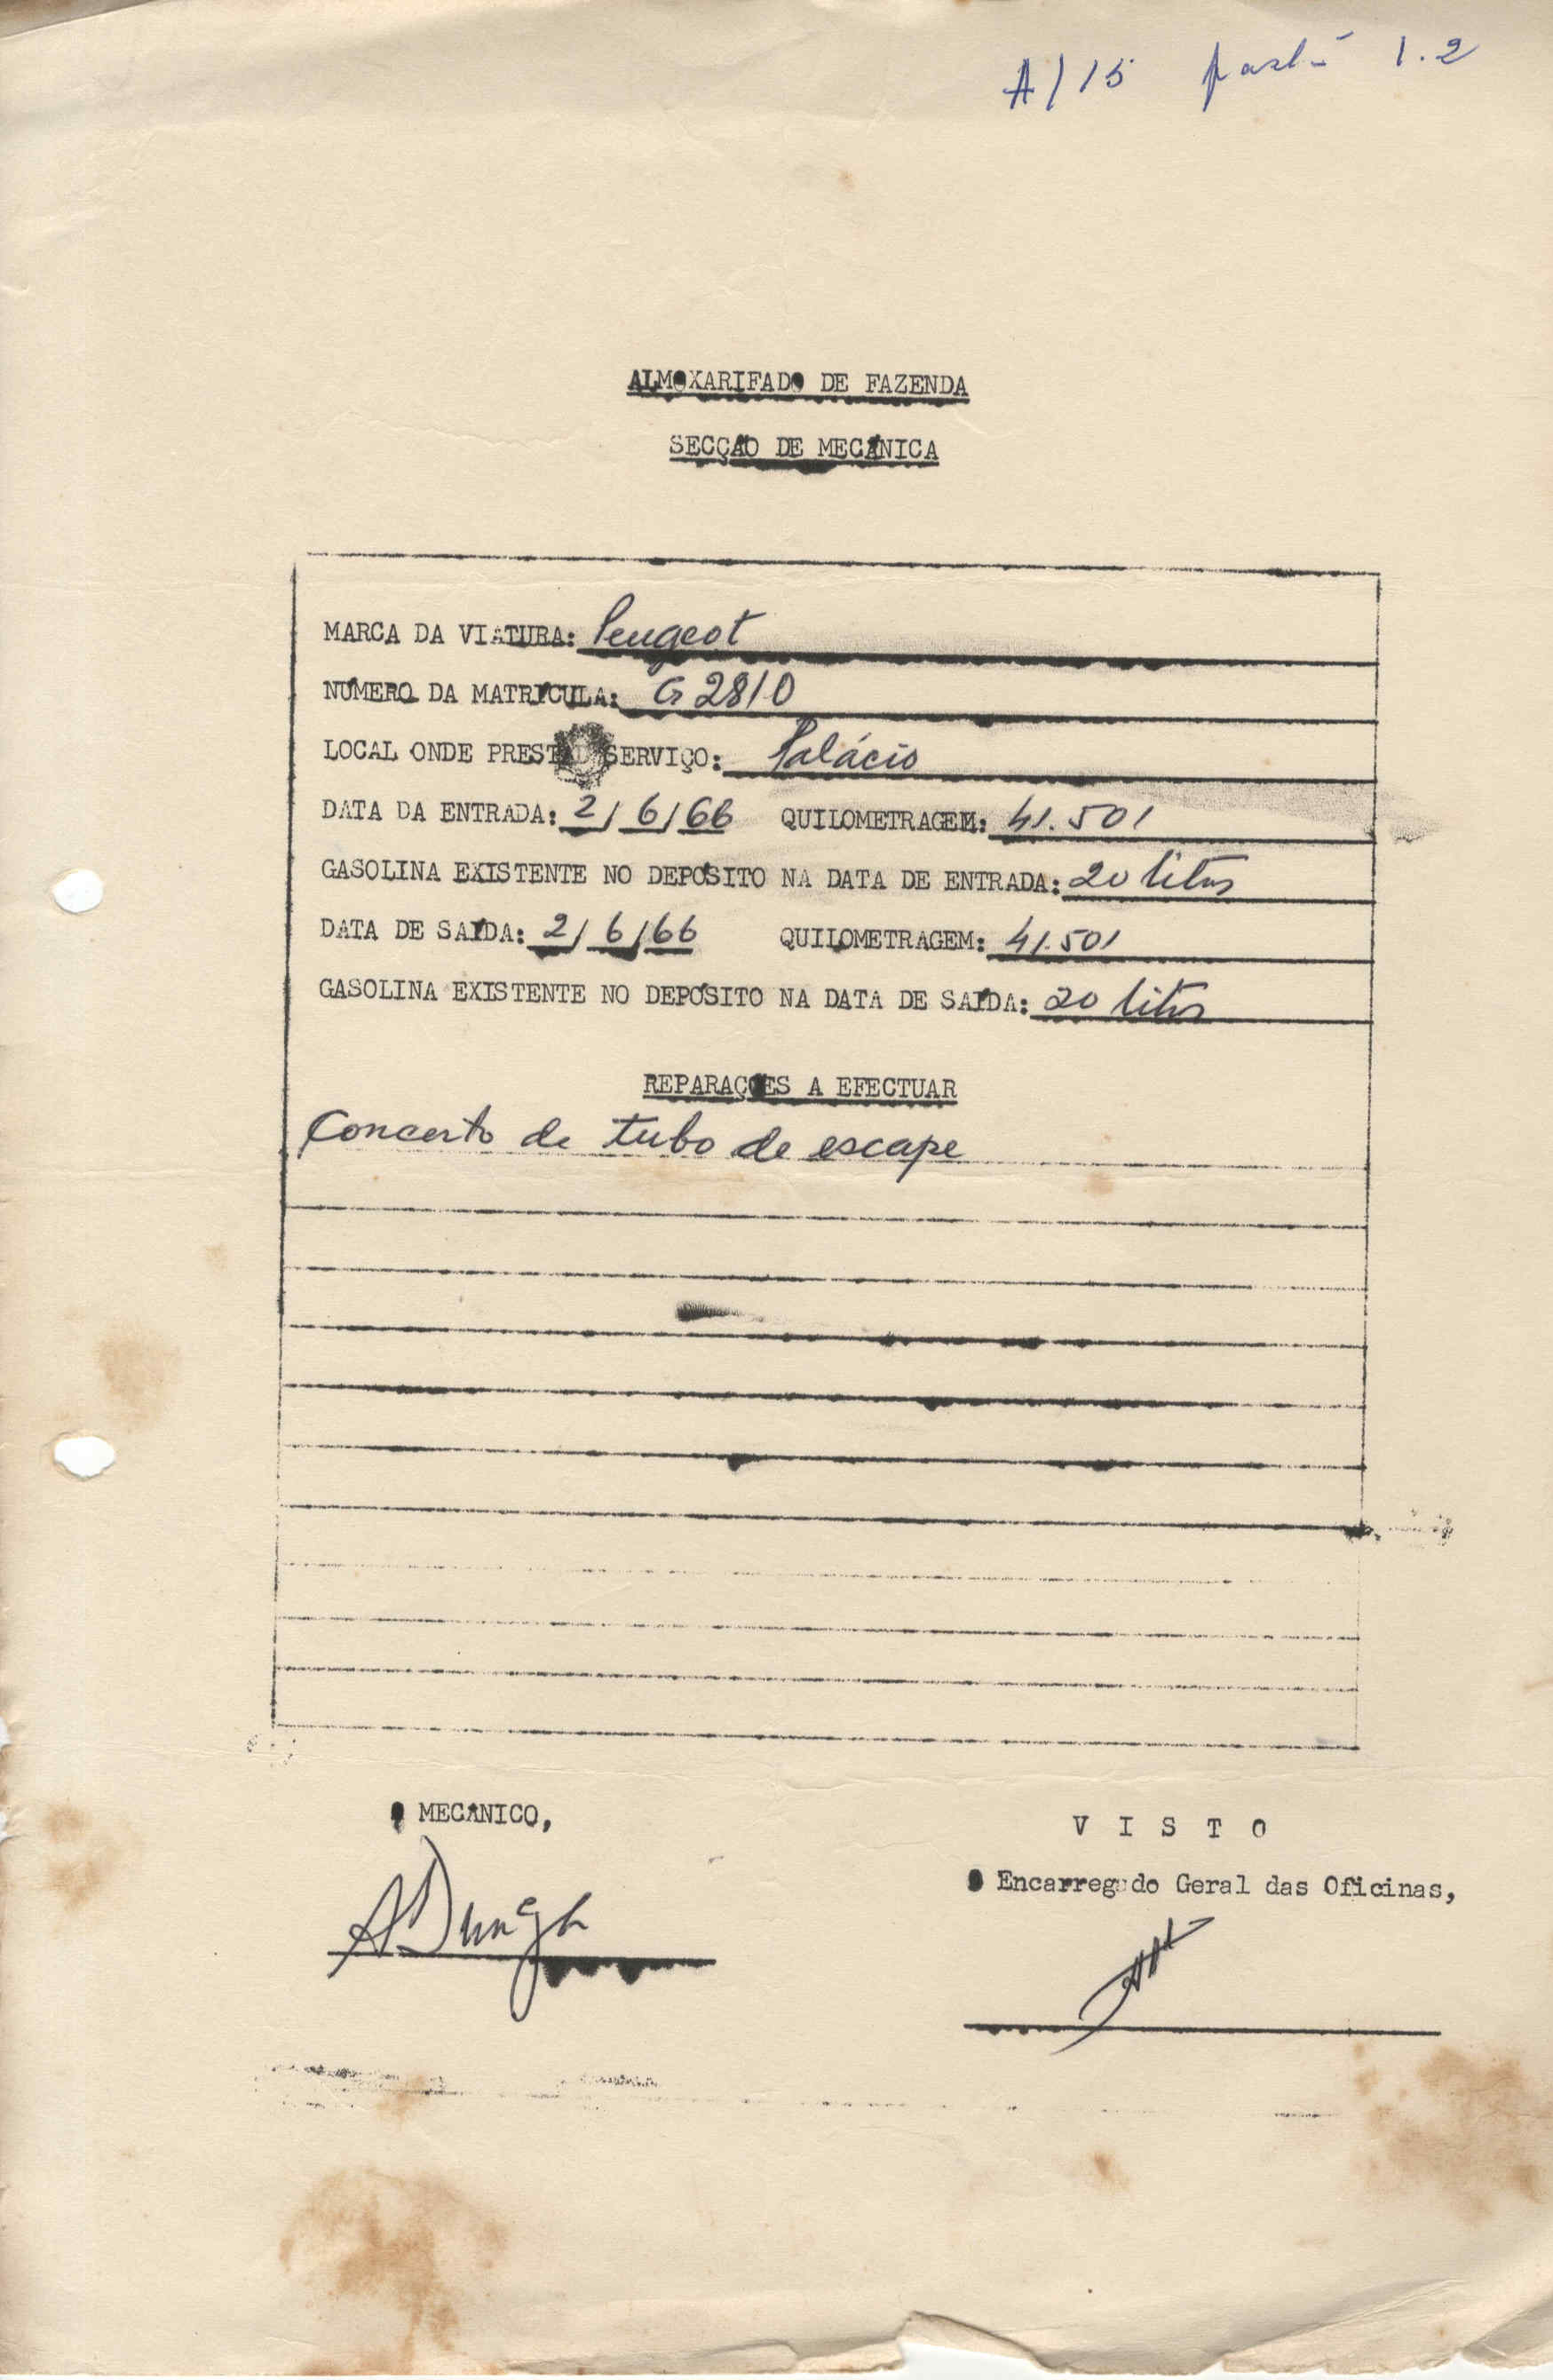 A/15 1.2
ALMOXARIFADO DE FAZENDA
SECÇÃO DE MECÂNICA
MARCA DA VIATURA: Peugeot
NÚMERO DA MATRÍCULA: G 2810
LOCAL ONDE PRESTA SERVIÇO: Palácio
DATA DA ENTRADA: 2/6/66 QUILOMETRAGEM: 41.501
GASOLINA EXISTENTE NO DEPÓSITO NA DATA DE ENTRADA: 20 litros
DATA DE SAÍDA: 2/6/66 QUILOMETRAGEM: 41.501
GASOLINA EXISTENTE NO DEPÓSITO NA DATA DE SAÍDA: 20 litros
REPARAÇÕES A EFECTUAR
Concerto de tubo de escape
O MECÂNICO,
V I S T O
O Encarregado Geral das Oficinas,